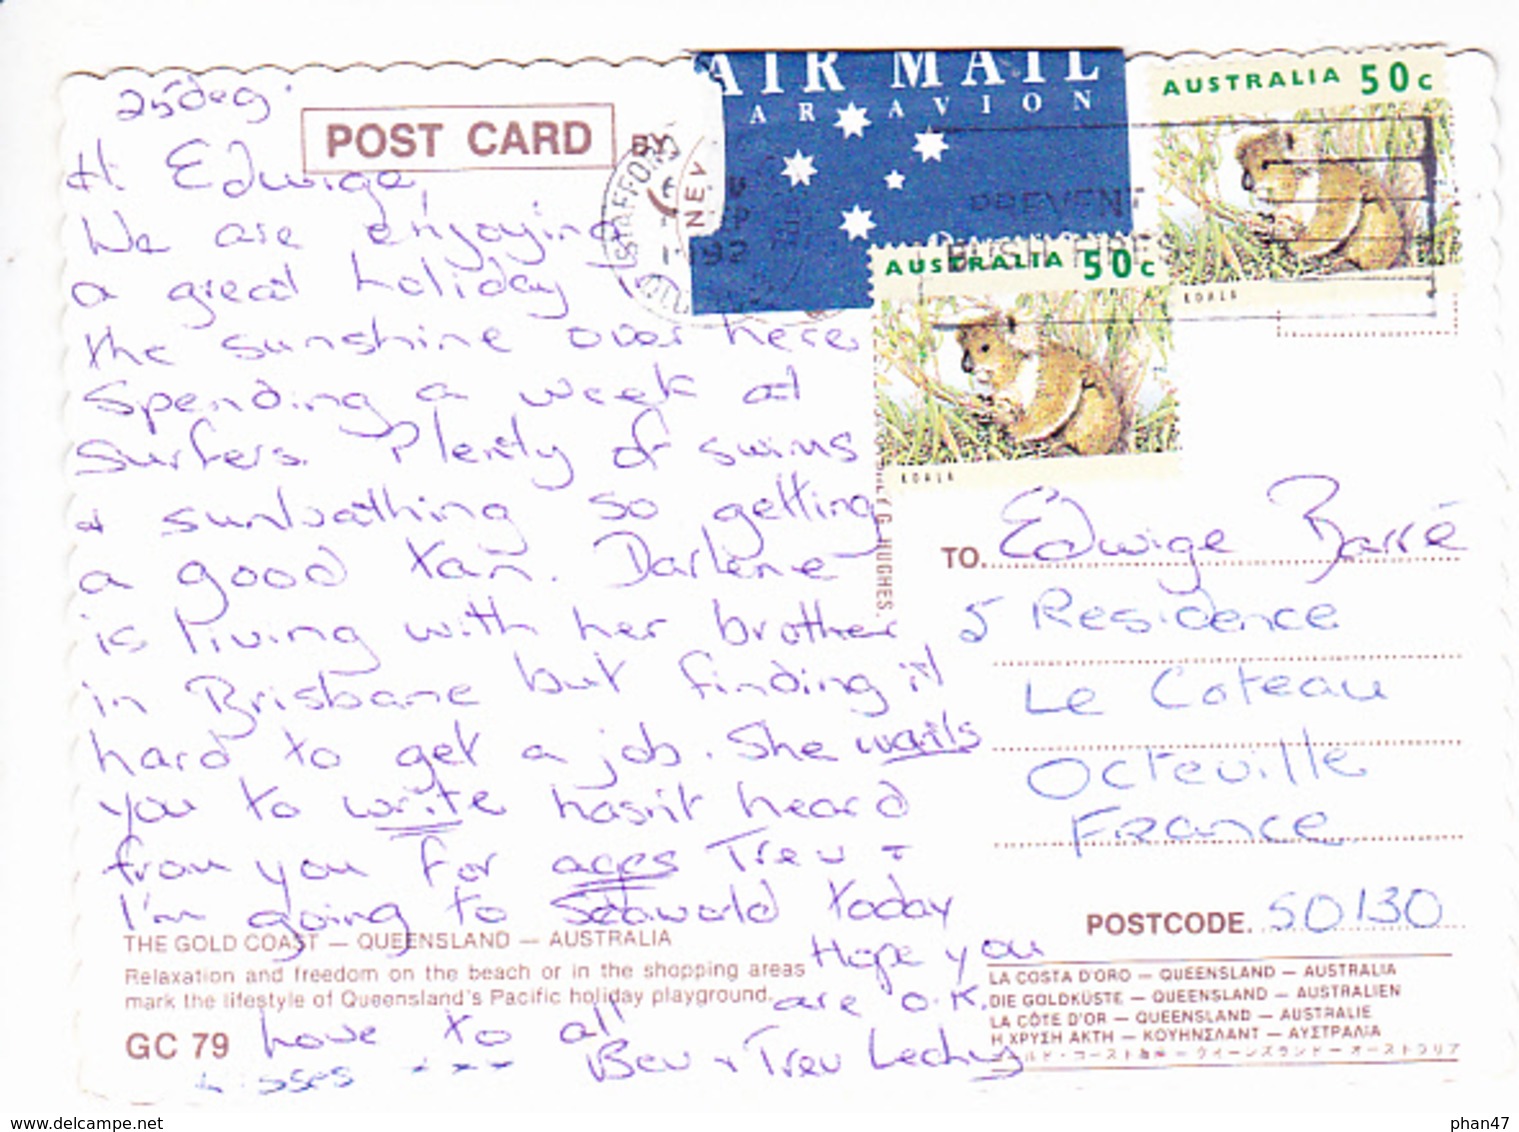 25deg.
POST CARD
Hi Edwige,
We are enjoying
a great holiday in
the sunshine over here.
Spending a week at
Surfers. Plenty of swims
& sunbathing so getting
a good tan. Darlene
is living with her brother
in Brisbane but finding it
hard to get a job. She waits
you to write hasn't heard
from you for ages Trev &
I'm going to Seaworld today
Hope you
are O.K.
Love to all
Bev & Trev Leahy
kisses xxx
THE GOLD COAST — QUEENSLAND — AUSTRALIA
Relaxation and freedom on the beach or in the shopping areas
mark the lifestyle of Queensland's Pacific holiday playground.
GC 79
BY
AIR MAIL
PAR AVION
STAFFORD
1992
PREVENT
BUSH FIRES
AUSTRALIA 50c
KOALA
AUSTRALIA 50c
KOALA
G. HUGHES.
TO. Edwige Barré
5 Residence
Le Coteau
Octeville
France
POSTCODE. 50130
LA COSTA D'ORO — QUEENSLAND — AUSTRALIA
DIE GOLDKÜSTE — QUEENSLAND — AUSTRALIEN
LA CÔTE D'OR — QUEENSLAND — AUSTRALIE
Η ΧΡΥΣΗ ΑΚΤΗ — ΚΟΥΗΝΣΛΑΝΤ — ΑΥΣΤΡΑΛΙΑ
ルド・コースト海岸 — クイーンズランド — オーストラリア
www.delcampe.net
phan47